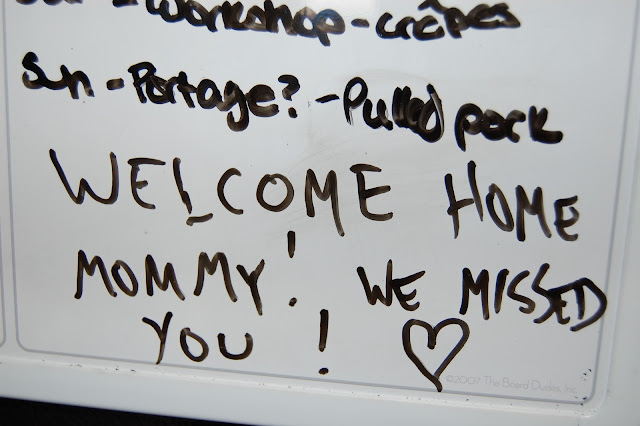 - Workshop - crêpes
Sun - Portage? - Pulled pork
WELCOME HOME
MOMMY! WE MISSED
YOU! ♡
©2007 The Board Dudes, Inc.